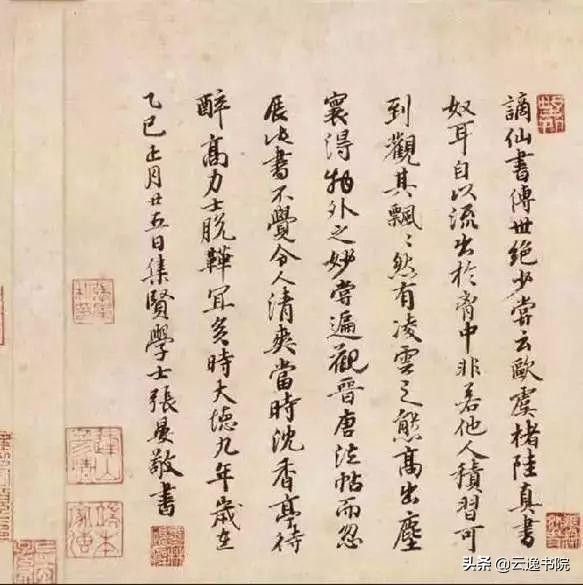 謫仙書傳世絶少嘗云歐虞褚陸真書
奴耳自以流出於胷中非若他人積習可
到觀其飄〻然有凌雲之態高出塵
寰得物外之妙嘗遍觀晉唐法帖而忽
展此書不覺令人清爽當時沈香亭待
醉高力士脱鞾冝矣時大德九年歲在
乙巳正月廿五日集賢學士張晏敬書
头条 @云逸书院